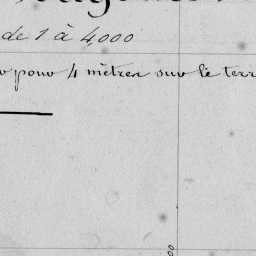 de 1 à 4,000
pour 4 mètres sur le terr
00